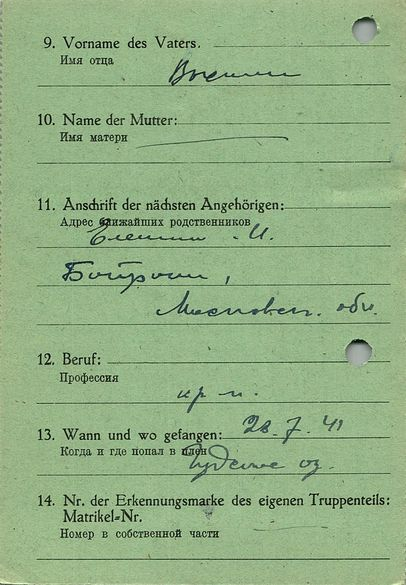 9. Vorname des Vaters.
Имя отца
10. Name der Mutter:
Имя матери
11. Anschrift der nächsten Angehörigen:
Адрес ближайших родственников
И.
12. Beruf:
Профессия
кр н.
13. Wann und wo gefangen: 28.7.41
Когда и где попал в плен
оз.
14. Nr. der Erkennungsmarke des eigenen Truppenteils:
Matrikel-Nr.
Номер в собственной части